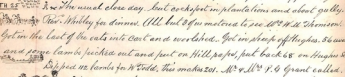 The usual close day, but cockspirt in plantations and about gully.
Rev. Whibley for dinner. All but off on metres to see Mr W. H. Thomson.
Got in the last of the oats into cart and worked. Got in sheep off Hughes. 36 ewes
and some lambs picked out and put on Hill paps, put back 68 on Hughes &
Dipped 112 lambs for W. Todd, this makes 201. Mr & Mrs F. G. Grant called